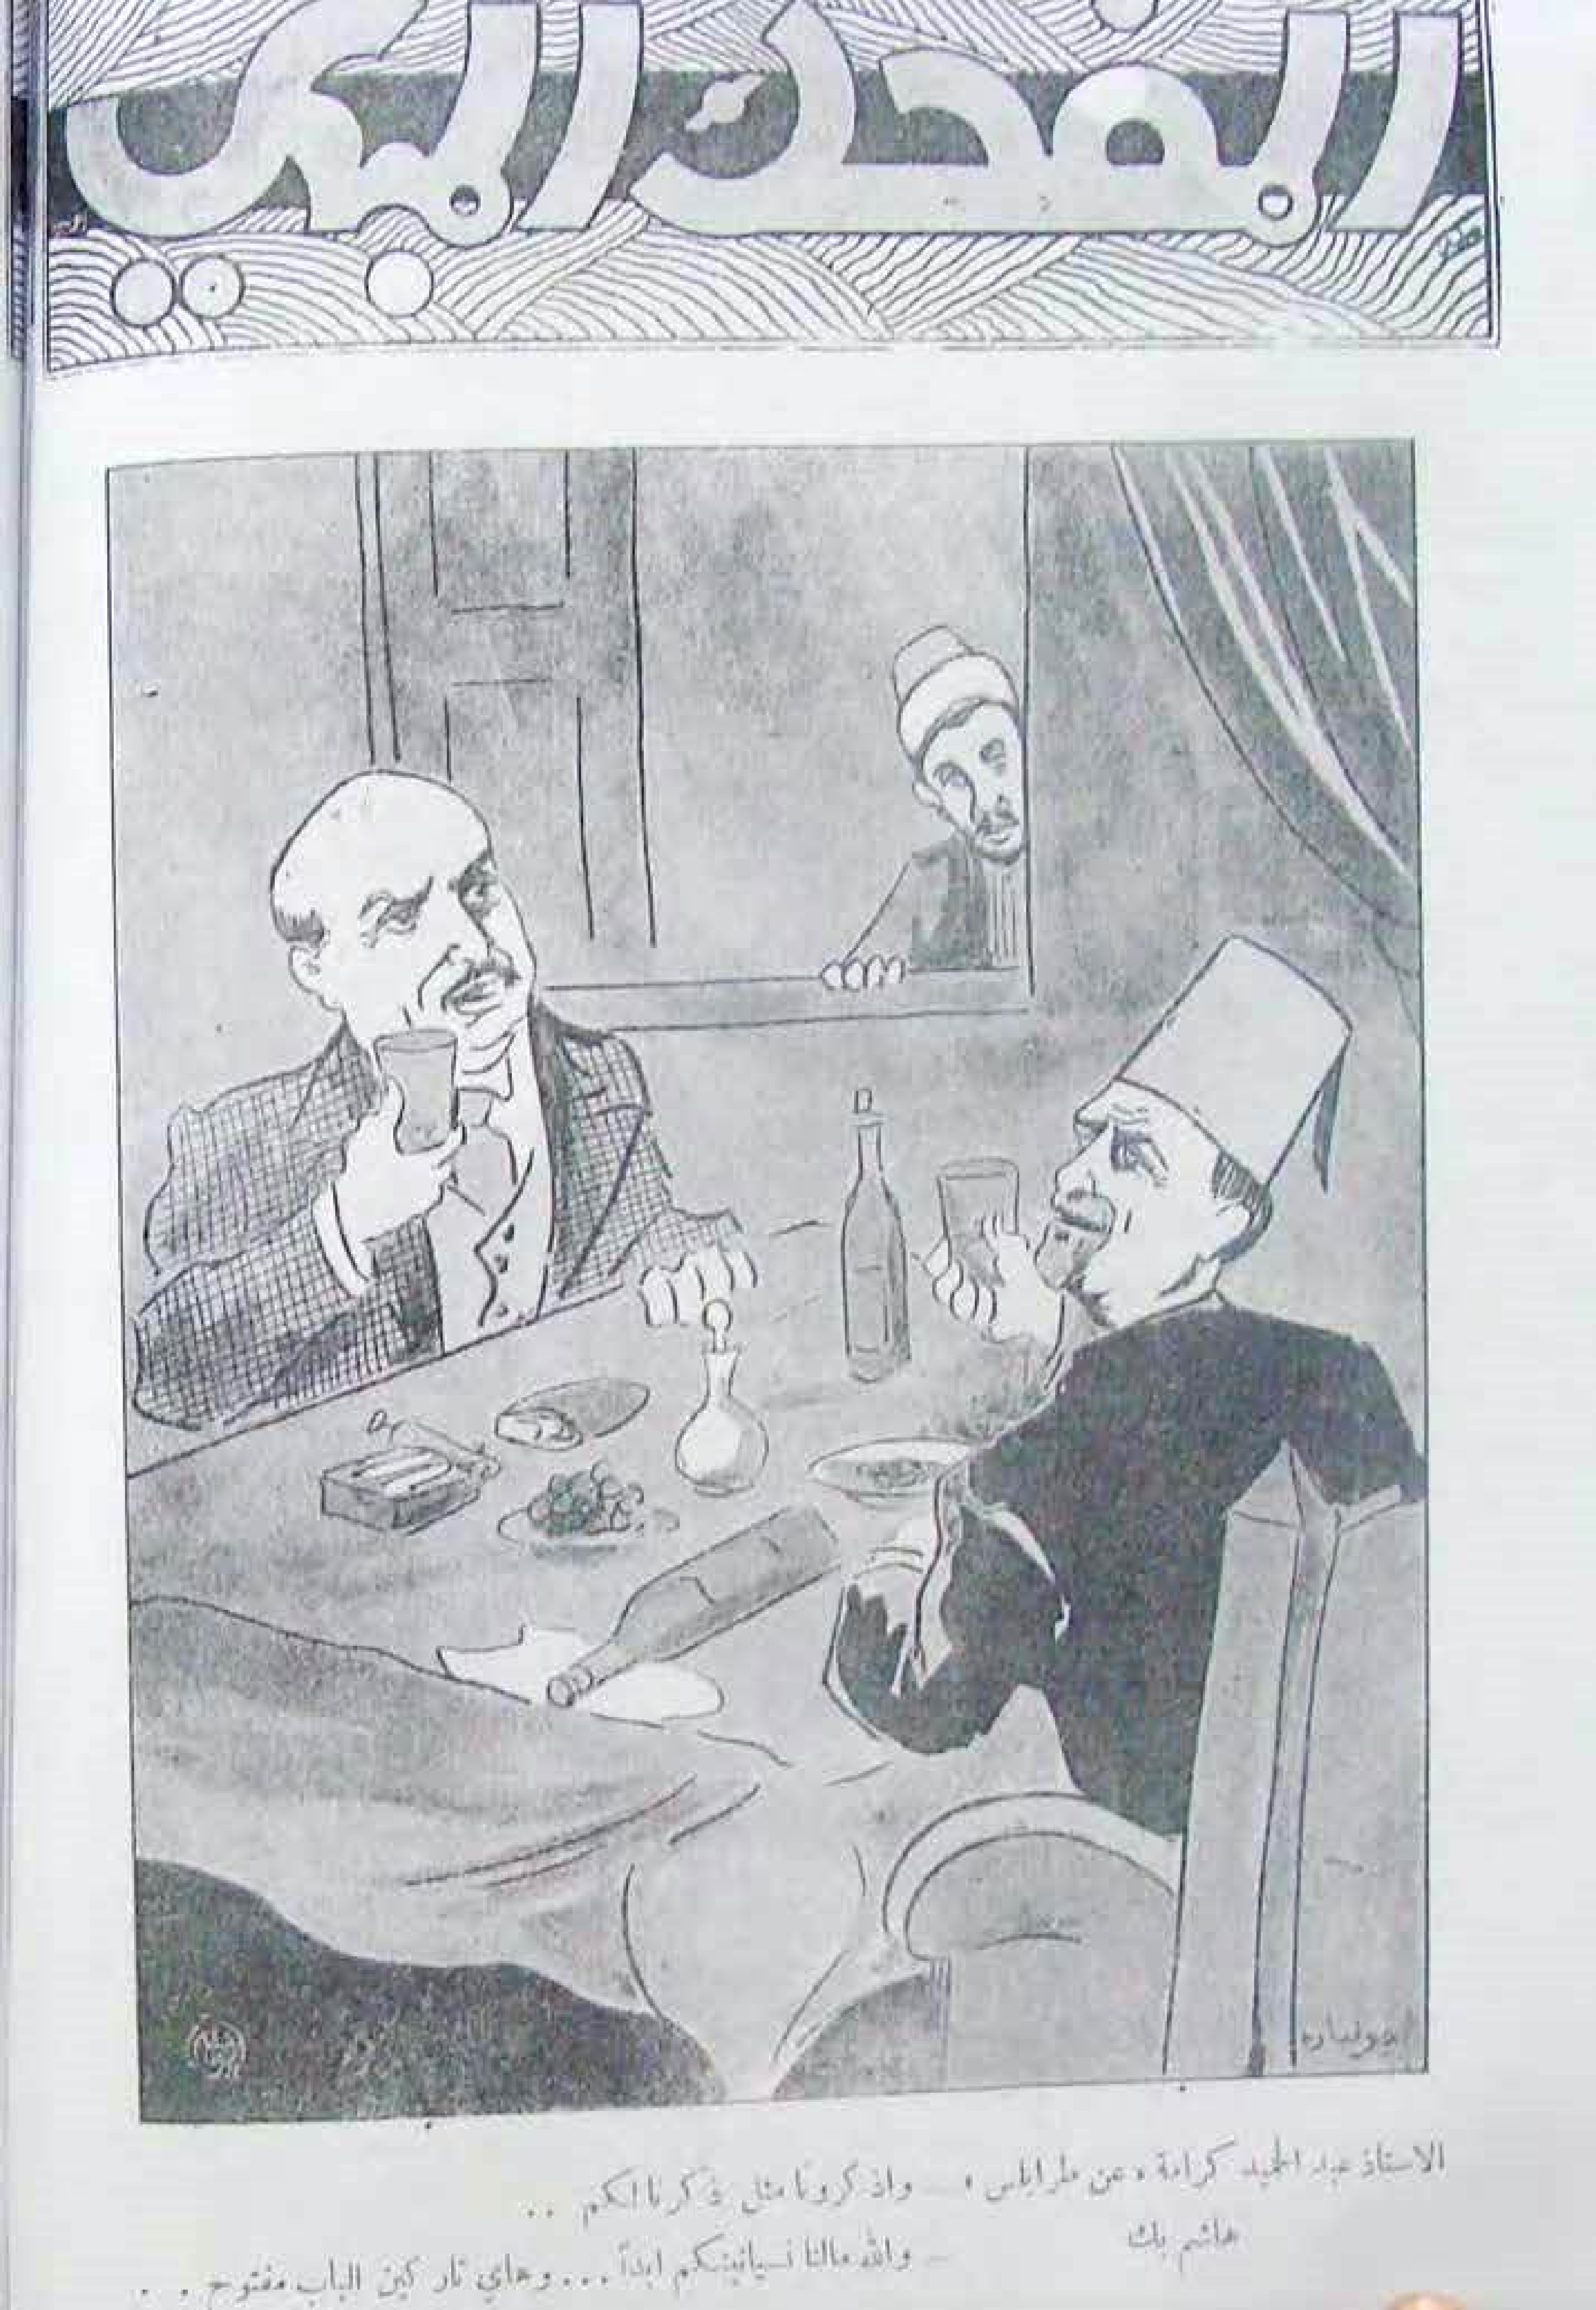 المضحك المبكي
جولياره
الاستاذ عبد الحميد كرامة «عن طرابلس» — واذكرونا مثل ذكرانا لكم ..
هاشم بك — والله مالنا نسيانينكم ابداً ... وهاي تاركين الباب مفتوح ..